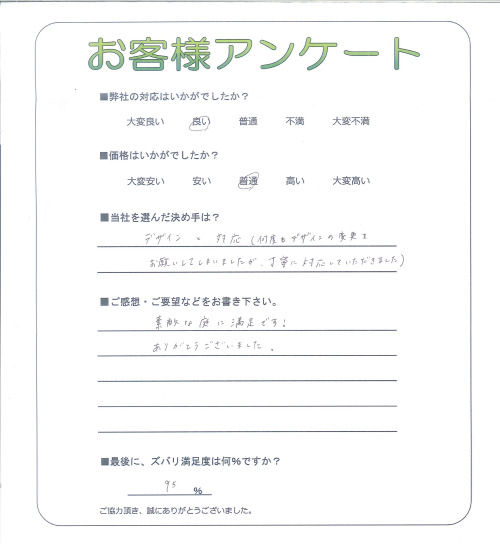 お客様アンケート
■弊社の対応はいかがでしたか？
大変良い 良い 普通 不満 大変不満
■価格はいかがでしたか？
大変安い 安い 普通 高い 大変高い
■当社を選んだ決め手は？
デザイン、対応（何度もデザインの変更を
お願いしてしまいましたが、丁寧に対応していただきました）
■ご感想・ご要望などをお書き下さい。
素敵な庭に満足です！
ありがとうございました。
■最後に、ズバリ満足度は何%ですか？
95 %
ご協力頂き、誠にありがとうございました。